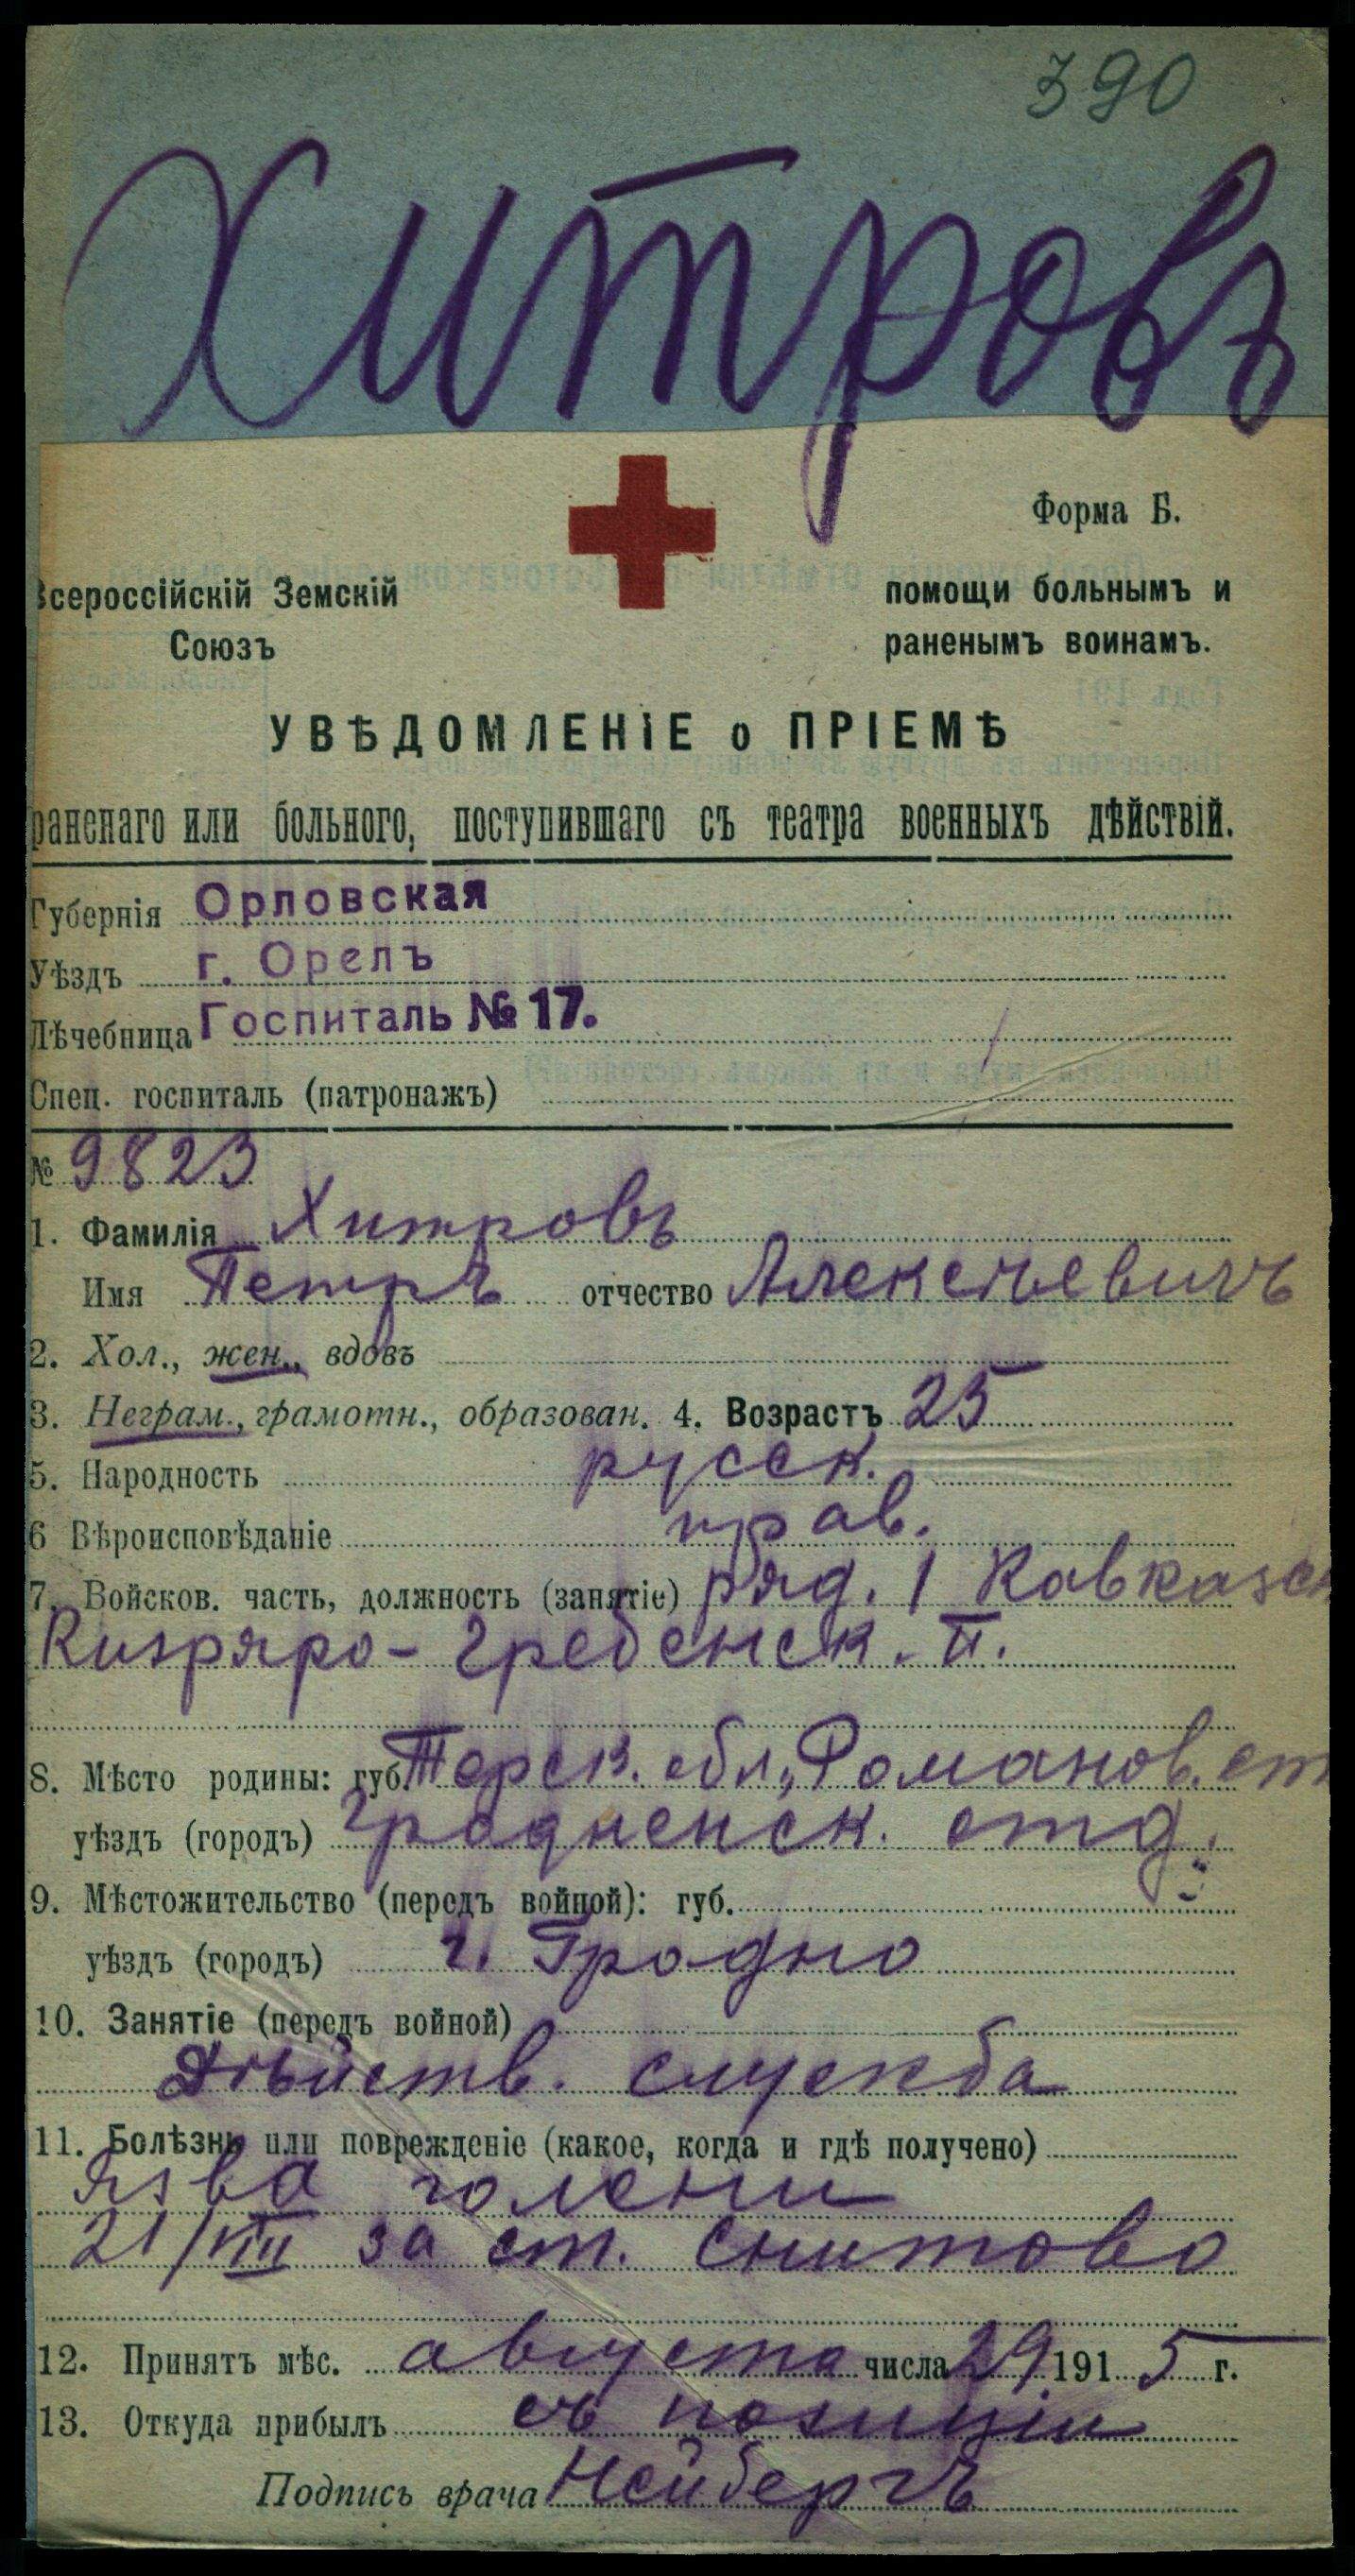 390
Хитровъ
Форма Б.
Всероссійскій Земскій
Союзъ
помощи больнымъ и
раненымъ воинамъ.
УВѢДОМЛЕНІЕ о ПРІЕМѢ
раненаго или больного, поступившаго съ театра военныхъ дѣйствій.
Губернія Орловская
Уѣздъ г. Орелъ
Лѣчебница Госпиталь № 17.
Спец. госпиталь (патронажъ)
№ 9823
1. Фамилія Хитровъ
Имя Петръ отчество Алексѣевичъ
2. Хол., жен., вдовъ
3. Неграм., грамотн., образован. 4. Возрастъ 25
5. Народность русск.
6 Вѣроисповѣданіе прав.
7. Войсков. часть, должность (занятіе) ряд. 1 Кавказск
Кизряро-Гребенск. п.
8. Мѣсто родины: губ. Терск. обл., Романов. ст
уѣздъ (городъ) Гродненск. отд.
9. Мѣстожительство (передъ войной): губ.
уѣздъ (городъ) г. Гродно
10. Занятіе (передъ войной)
Дѣйств. служба
11. Болѣзнь или поврежденіе (какое, когда и гдѣ получено)
язва голени
21/VIII за ст. Снитово
12. Принятъ мѣс. августа числа 29 1915 г.
13. Откуда прибылъ съ позиціи
Подпись врача Нейбергъ